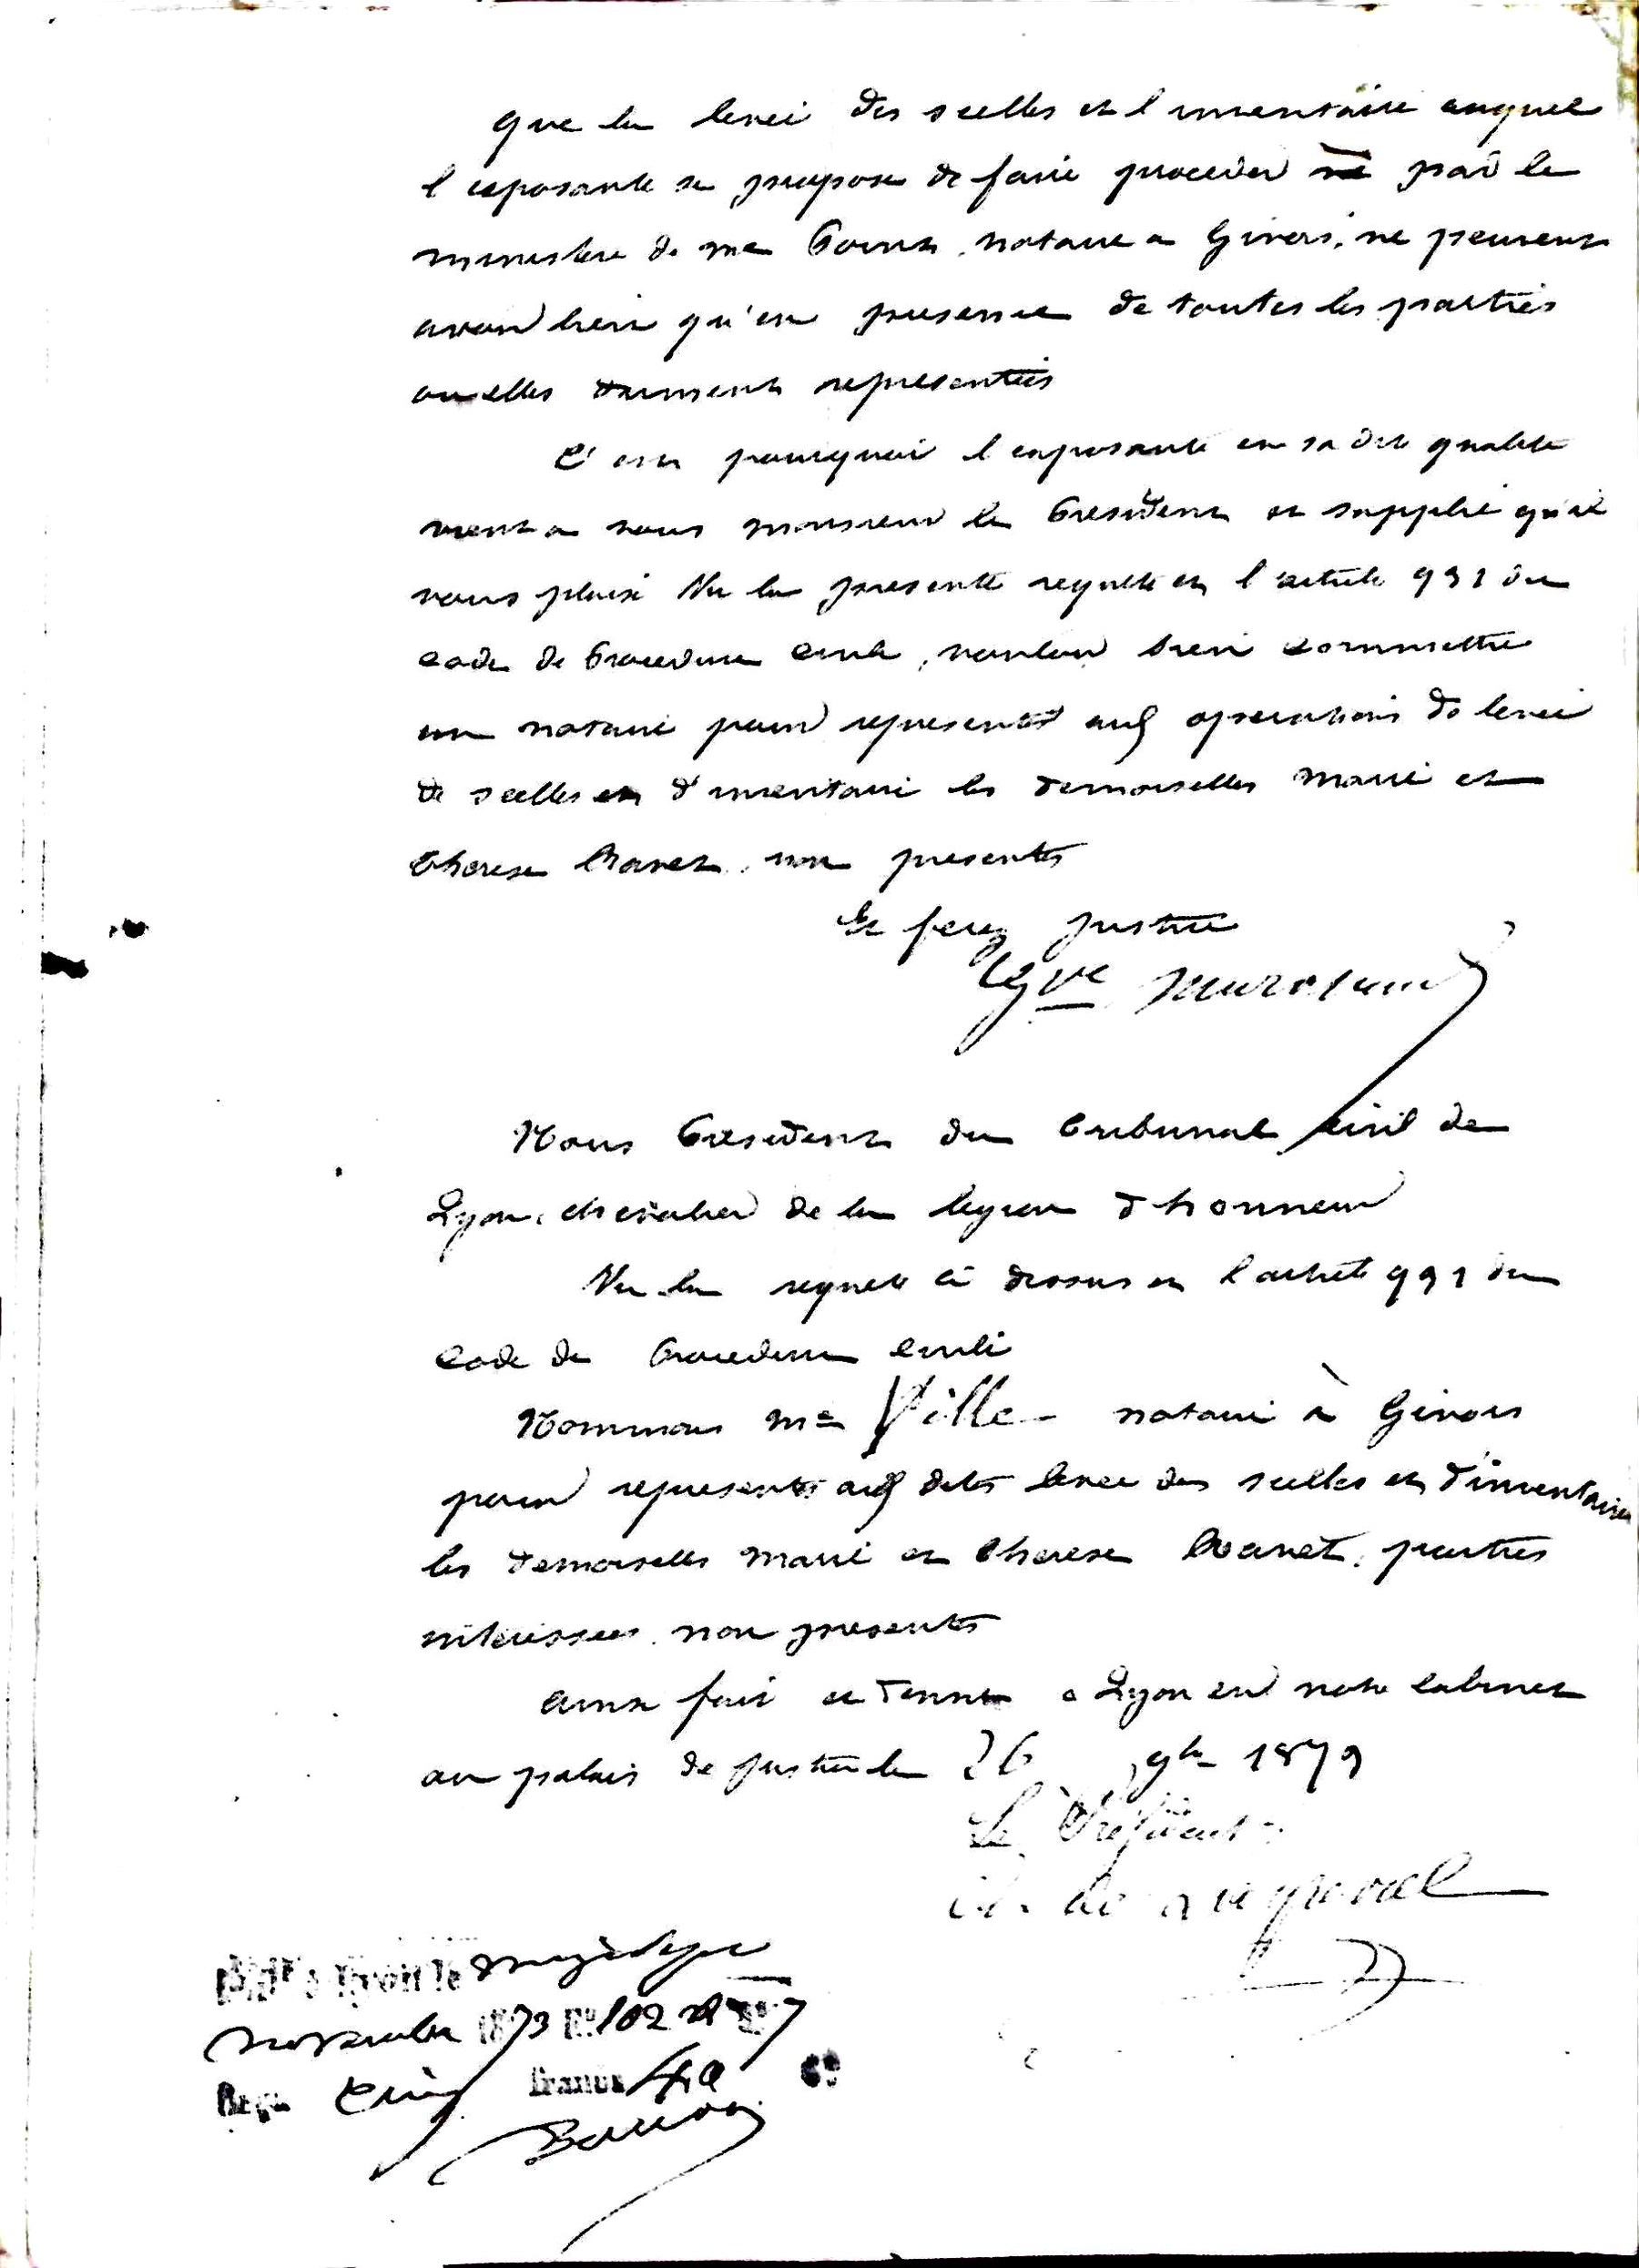 que la levée des scelles et l inventaire auquel
l exposante se propose de faire proceder par le
ministere de me notaire a Givors, ne peuvent
avoir lieu qu'en presence de toutes les parties
ou elles dument representées
C est pourquoi l exposante en sa dite qualite
vient a vous monsieur le President et supplie qu'il
vous plaise Vu la presente requete et l article 931 du
code de Procedure civile, vouloir bien commettre
un notaire pour representer aux operations de levée
de scelles et d'inventaire les demoiselles Marie et
Therese non presentes
Et ferez justice
Nous President du Tribunal civil de
Lyon, chevalier de la legion d honneur
Vu la requete ci dessus et l article 931 du
code de Procedure civile
Nommons me Ville notaire à Givors
pour representer aux dites levee des scelles et d'inventaire
les demoiselles Marie et Therese parties
interessees non presentes
Ainsi fait et donné a Lyon en notre cabinet
au palais de justice le 26 9bre 1879
Le President
novembre
francs